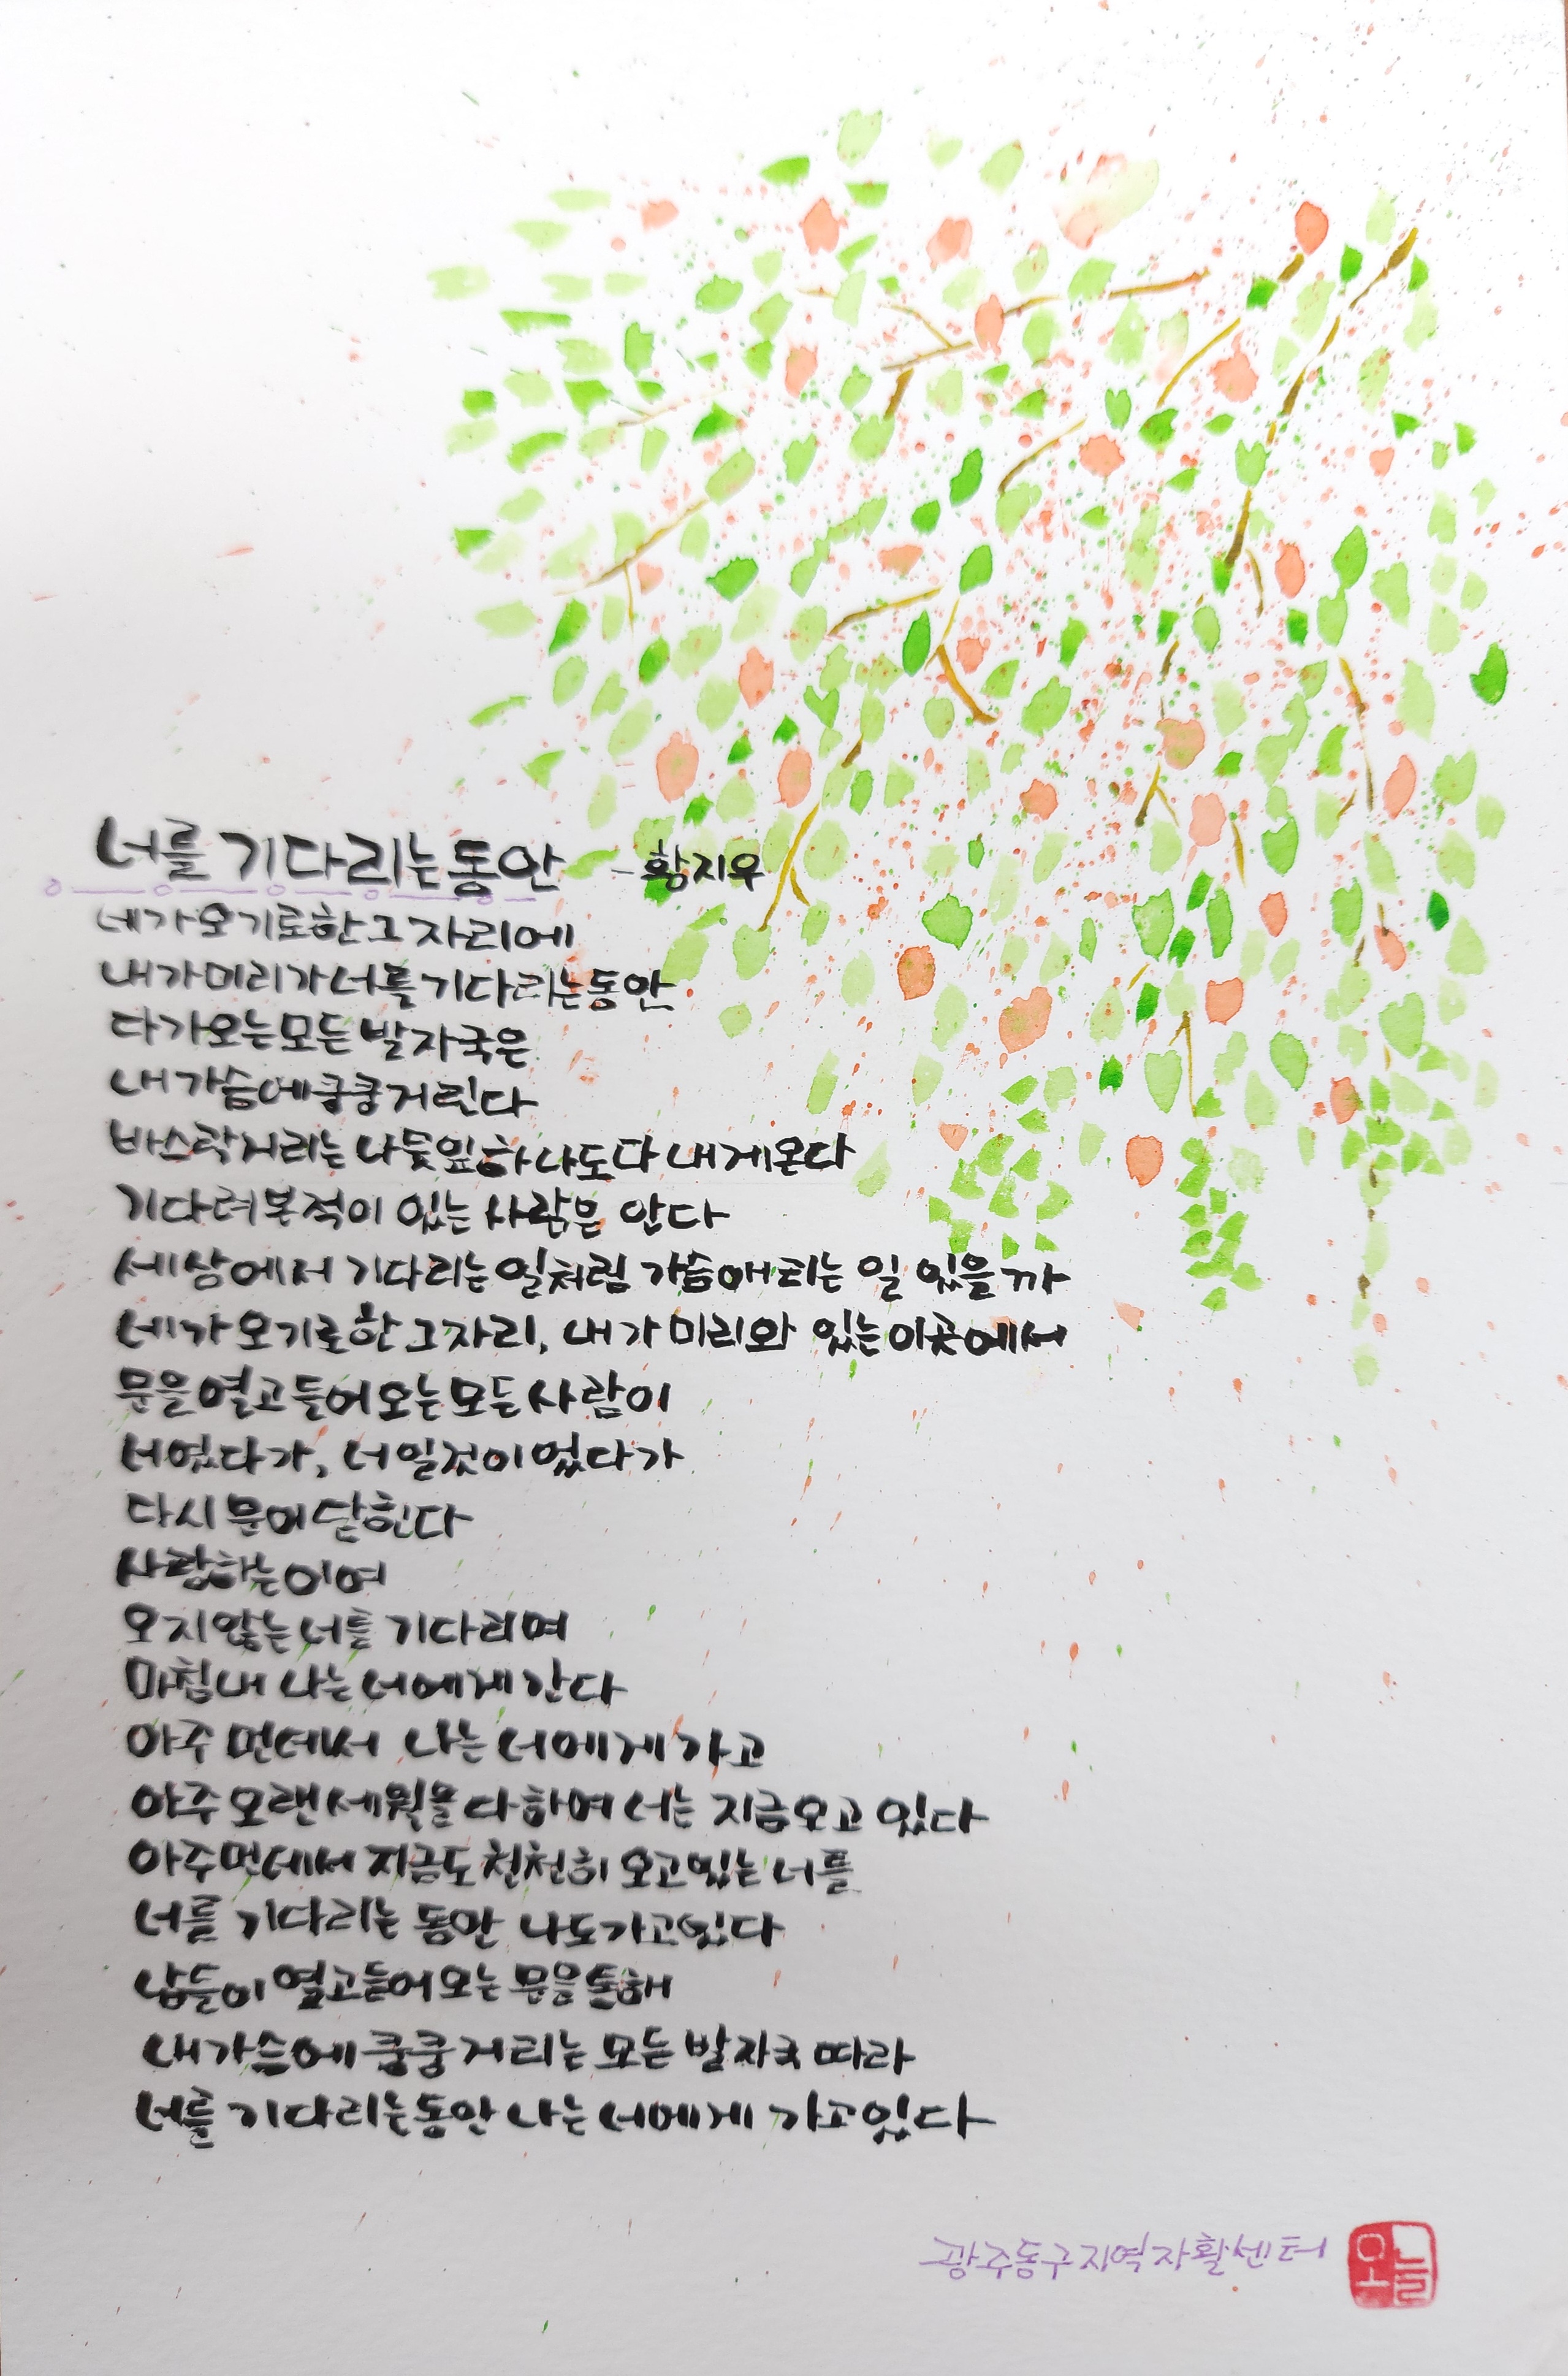 너를 기다리는 동안 - 황지우
네가 오기로 한 그 자리에
내가 미리 가 너를 기다리는 동안
다가오는 모든 발자국은
내 가슴에 쿵쿵거린다
바스락거리는 나뭇잎 하나도 다 내게 온다
기다려본 적이 있는 사람은 안다
세상에서 기다리는 일처럼 가슴 애리는 일 있을까
네가 오기로 한 그 자리, 내가 미리 와 있는 이곳에서
문을 열고 들어오는 모든 사람이
너였다가, 너일 것이었다가
다시 문이 닫힌다
사랑하는 이여
오지 않는 너를 기다리며
마침내 나는 너에게 간다
아주 먼 데서 나는 너에게 가고
아주 오랜 세월을 다하여 너는 지금 오고 있다
아주 먼 데서 지금도 천천히 오고 있는 너를
너를 기다리는 동안 나도 가고 있다
남들이 열고 들어오는 문을 통해
내 가슴에 쿵쿵거리는 모든 발자국 따라
너를 기다리는 동안 나는 너에게 가고 있다
광주동구지역자활센터
오늘